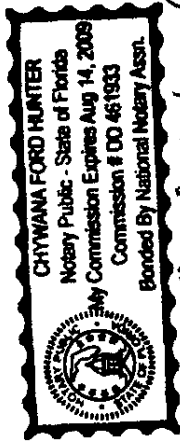 CHYWANA FORD HUNTER
Notary Public - State of Florida
My Commission Expires Aug 14, 2009
Commission # DD 461933
Bonded By National Notary Assn.
NOTARY PUBLIC
STATE OF FL